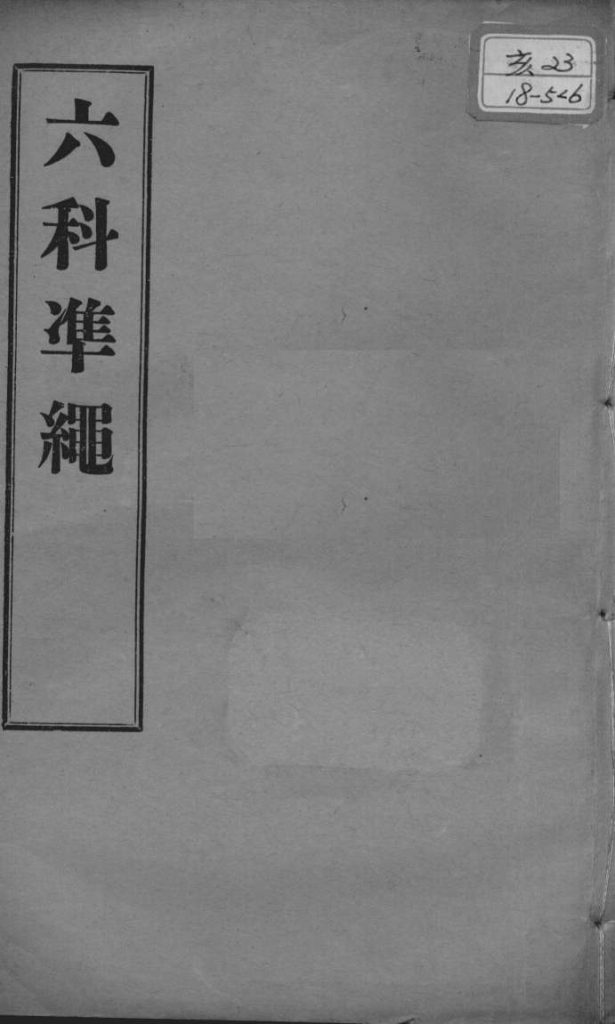 六科準繩
亥23
18-526